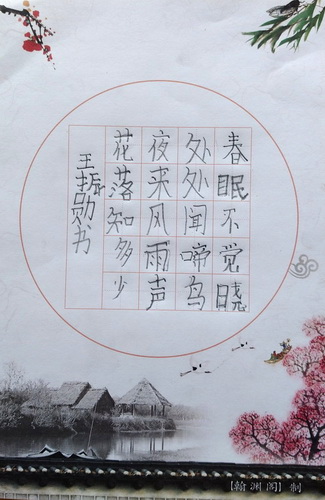 春眠不觉晓
处处闻啼鸟
夜来风雨声
花落知多少
王振勋书
【翰渊阁】制